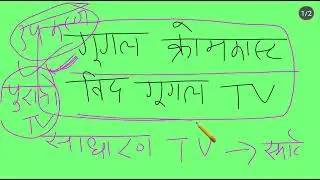 उपकरण
गूगल क्रोमकास्ट
पुराना TV
विद गूगल TV
साधारण TV → स्मार्ट
1/2